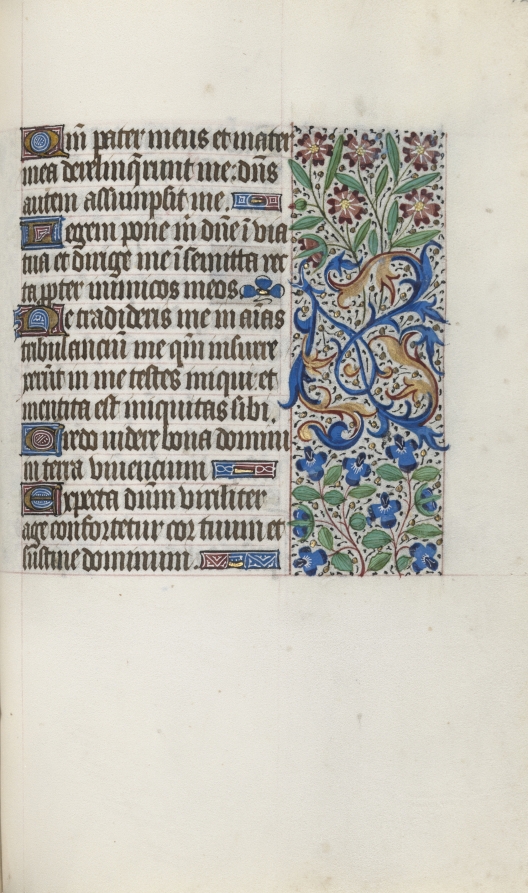 Qm̄ pater meus et mater
mea derelinq̄runt me: dn̄s
autem assumpsit me.
Legem pone m̄ dn̄e ī via
tua et dirige me ī semitta rec
ta ꝓpter inimicos meos
Ne tradideris me in aīas
tribulanciū me qm̄ insurre
xerūt in me testes iniqui et
mentita est iniquitas sibi.
Credo videre bona domini
in terra vivencium
Expecta dn̄m viriliter
age confortetur cor tuum et
sustine dominum.